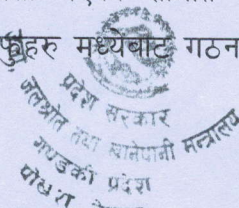 फुहरु मध्येबाट गठन
प्रदेश सरकार
जलश्रोत तथा खानेपानी मन्त्रालय
गण्डकी प्रदेश
पोखरा